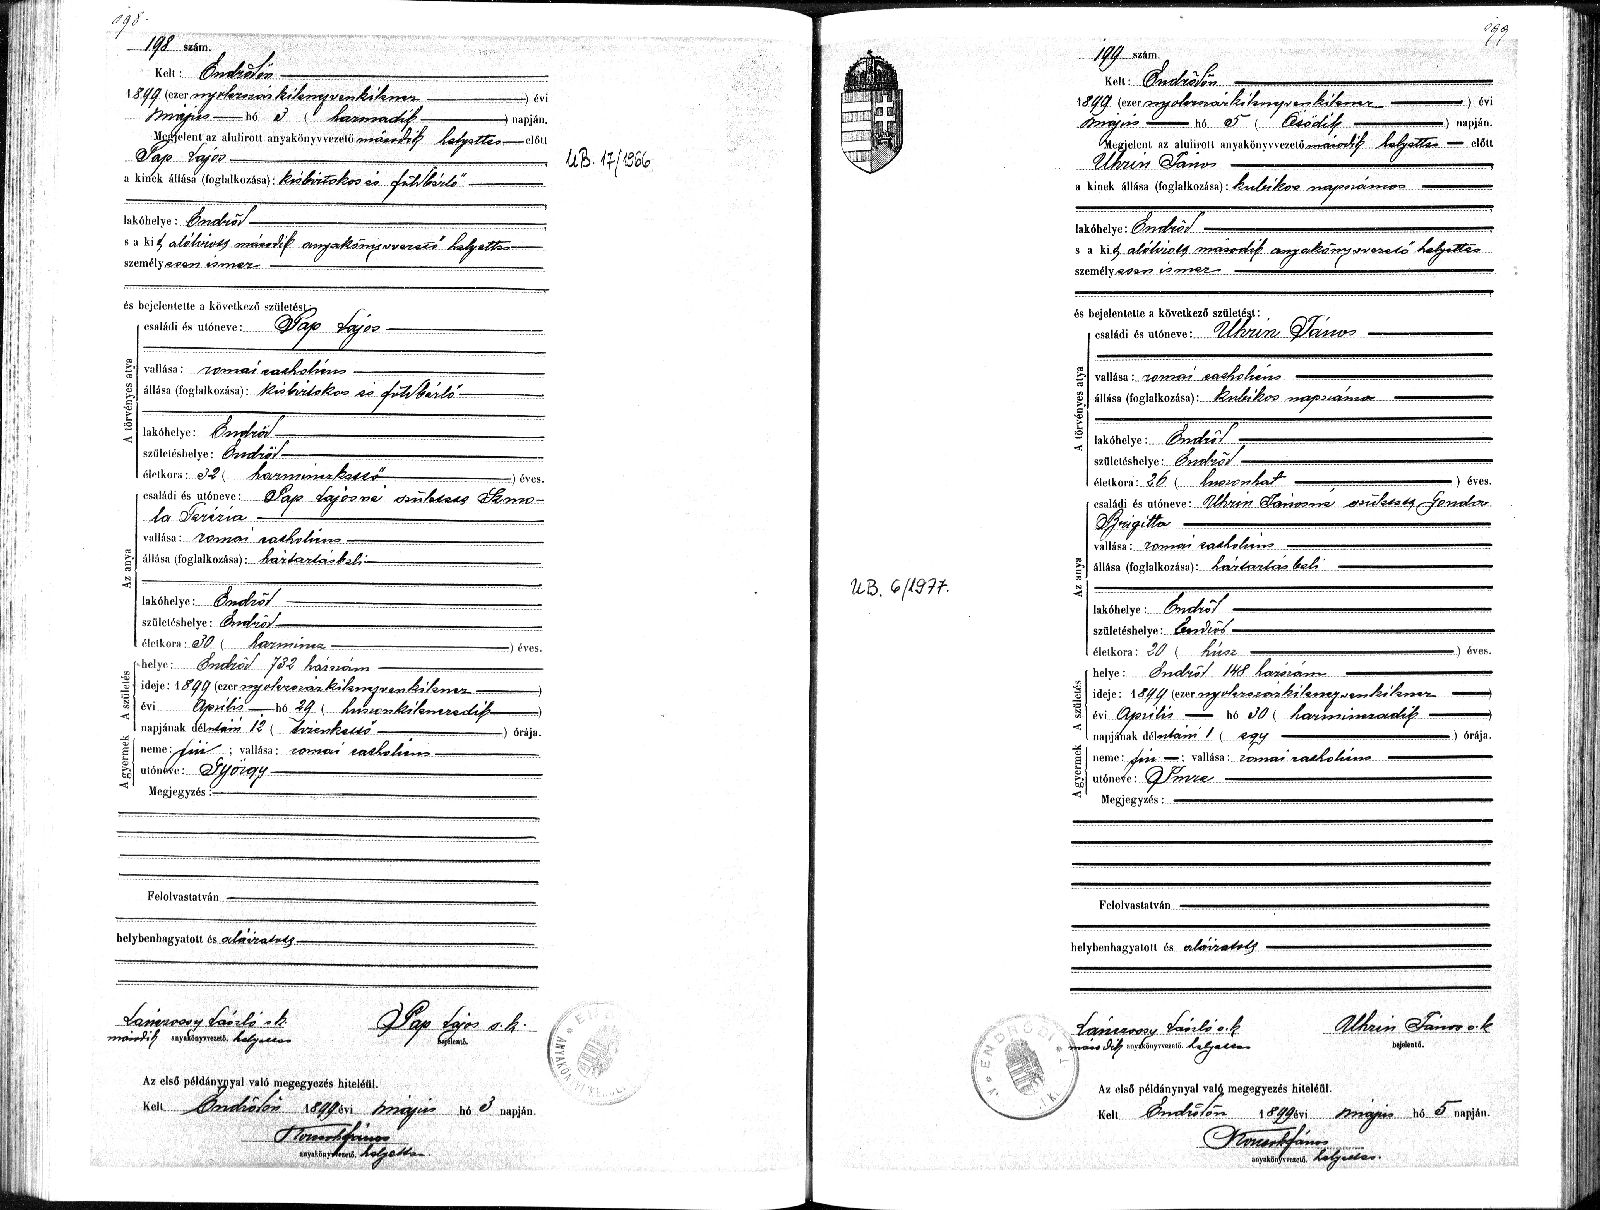 198.
198 szám.
Kelt: Endrődön
1899 (ezer nyolczszázkilenczvenkilencz) évi
május hó 3 (harmadik) napján.
Megjelent az alulirott anyakönyvvezető második helyettes előtt
Pap Lajos
a kinek állása (foglalkozása): kisbirtokos és földbérlő
lakóhelye: Endrőd
s a kit alólirott második anyakönyvvezető helyettes
személyesen ismer
és bejelentette a következő születést:
A törvényes atya
családi és utóneve: Pap Lajos
vallása: romai catholicus
állása (foglalkozása): kisbirtokos és földbérlő
lakóhelye: Endrőd
születéshelye: Endrőd
életkora: 32 (harminczkettő) éves.
Az anya
családi és utóneve: Pap Lajosné született Szmo-
la Terézia
vallása: romai catholicus
állása (foglalkozása): háztartásbeli
lakóhelye: Endrőd
születéshelye: Endrőd
életkora: 30 (harmincz) éves.
A születés
helye: Endrőd 732 házszám
ideje: 1899 (ezer nyolczszázkilenczvenkilencz)
évi Április hó 29 (huszonkilenczedik)
napjának délutáni 12 (tizenkettő) órája.
A gyermek
neme: fiu; vallása: romai catholicus
utóneve: György
Megjegyzés:
Felolvastatván
helybenhagyatott és aláiratott
Lánczossy László s.k. Pap Lajos s.k.
második anyakönyvvezető. helyettes bejelentő.
Az első példánynyal való megegyezés hiteléül.
Kelt Endrődön 1899 évi május hó 3 napján.
anyakönyvvezető. helyettes
UB. 17/1966
199
199 szám
Kelt: Endrődön
1899 (ezer nyolczszázkilenczvenkilencz) évi
május hó 5 (ötödik) napján.
Megjelent az alulirott anyakönyvvezető második helyettes előtt
Uhrin János
a kinek állása (foglalkozása): kubikos napszámos
lakóhelye: Endrőd
s a kit alólirott második anyakönyvvezető helyettes
személyesen ismer
és bejelentette a következő születést:
A törvényes atya
családi és utóneve: Uhrin János
vallása: romai catholicus
állása (foglalkozása): kubikos napszámos
lakóhelye: Endrőd
születéshelye: Endrőd
életkora: 26 (huszonhat) éves.
Az anya
családi és utóneve: Uhrin Jánosné született Gondor
Brigitta
vallása: romai catholicus
állása (foglalkozása): háztartásbeli
lakóhelye: Endrőd
születéshelye: Endrőd
életkora: 20 (husz) éves.
A születés
helye: Endrőd 148 házszám
ideje: 1899 (ezer nyolczszázkilenczvenkilencz)
évi Április hó 30 (harminczadik)
napjának délutáni 1 (egy) órája.
A gyermek
neme: fiu; vallása: romai catholicus
utóneve: Imre
Megjegyzés:
Felolvastatván
helybenhagyatott és aláiratott
Lánczossy László s.k. Uhrin János s.k
második anyakönyvvezető. helyettes bejelentő.
Az első példánynyal való megegyezés hiteléül.
Kelt Endrődön 1899 évi május hó 5 napján.
anyakönyvvezető. helyettes.
UB. 6/1977.
ENDRŐDI